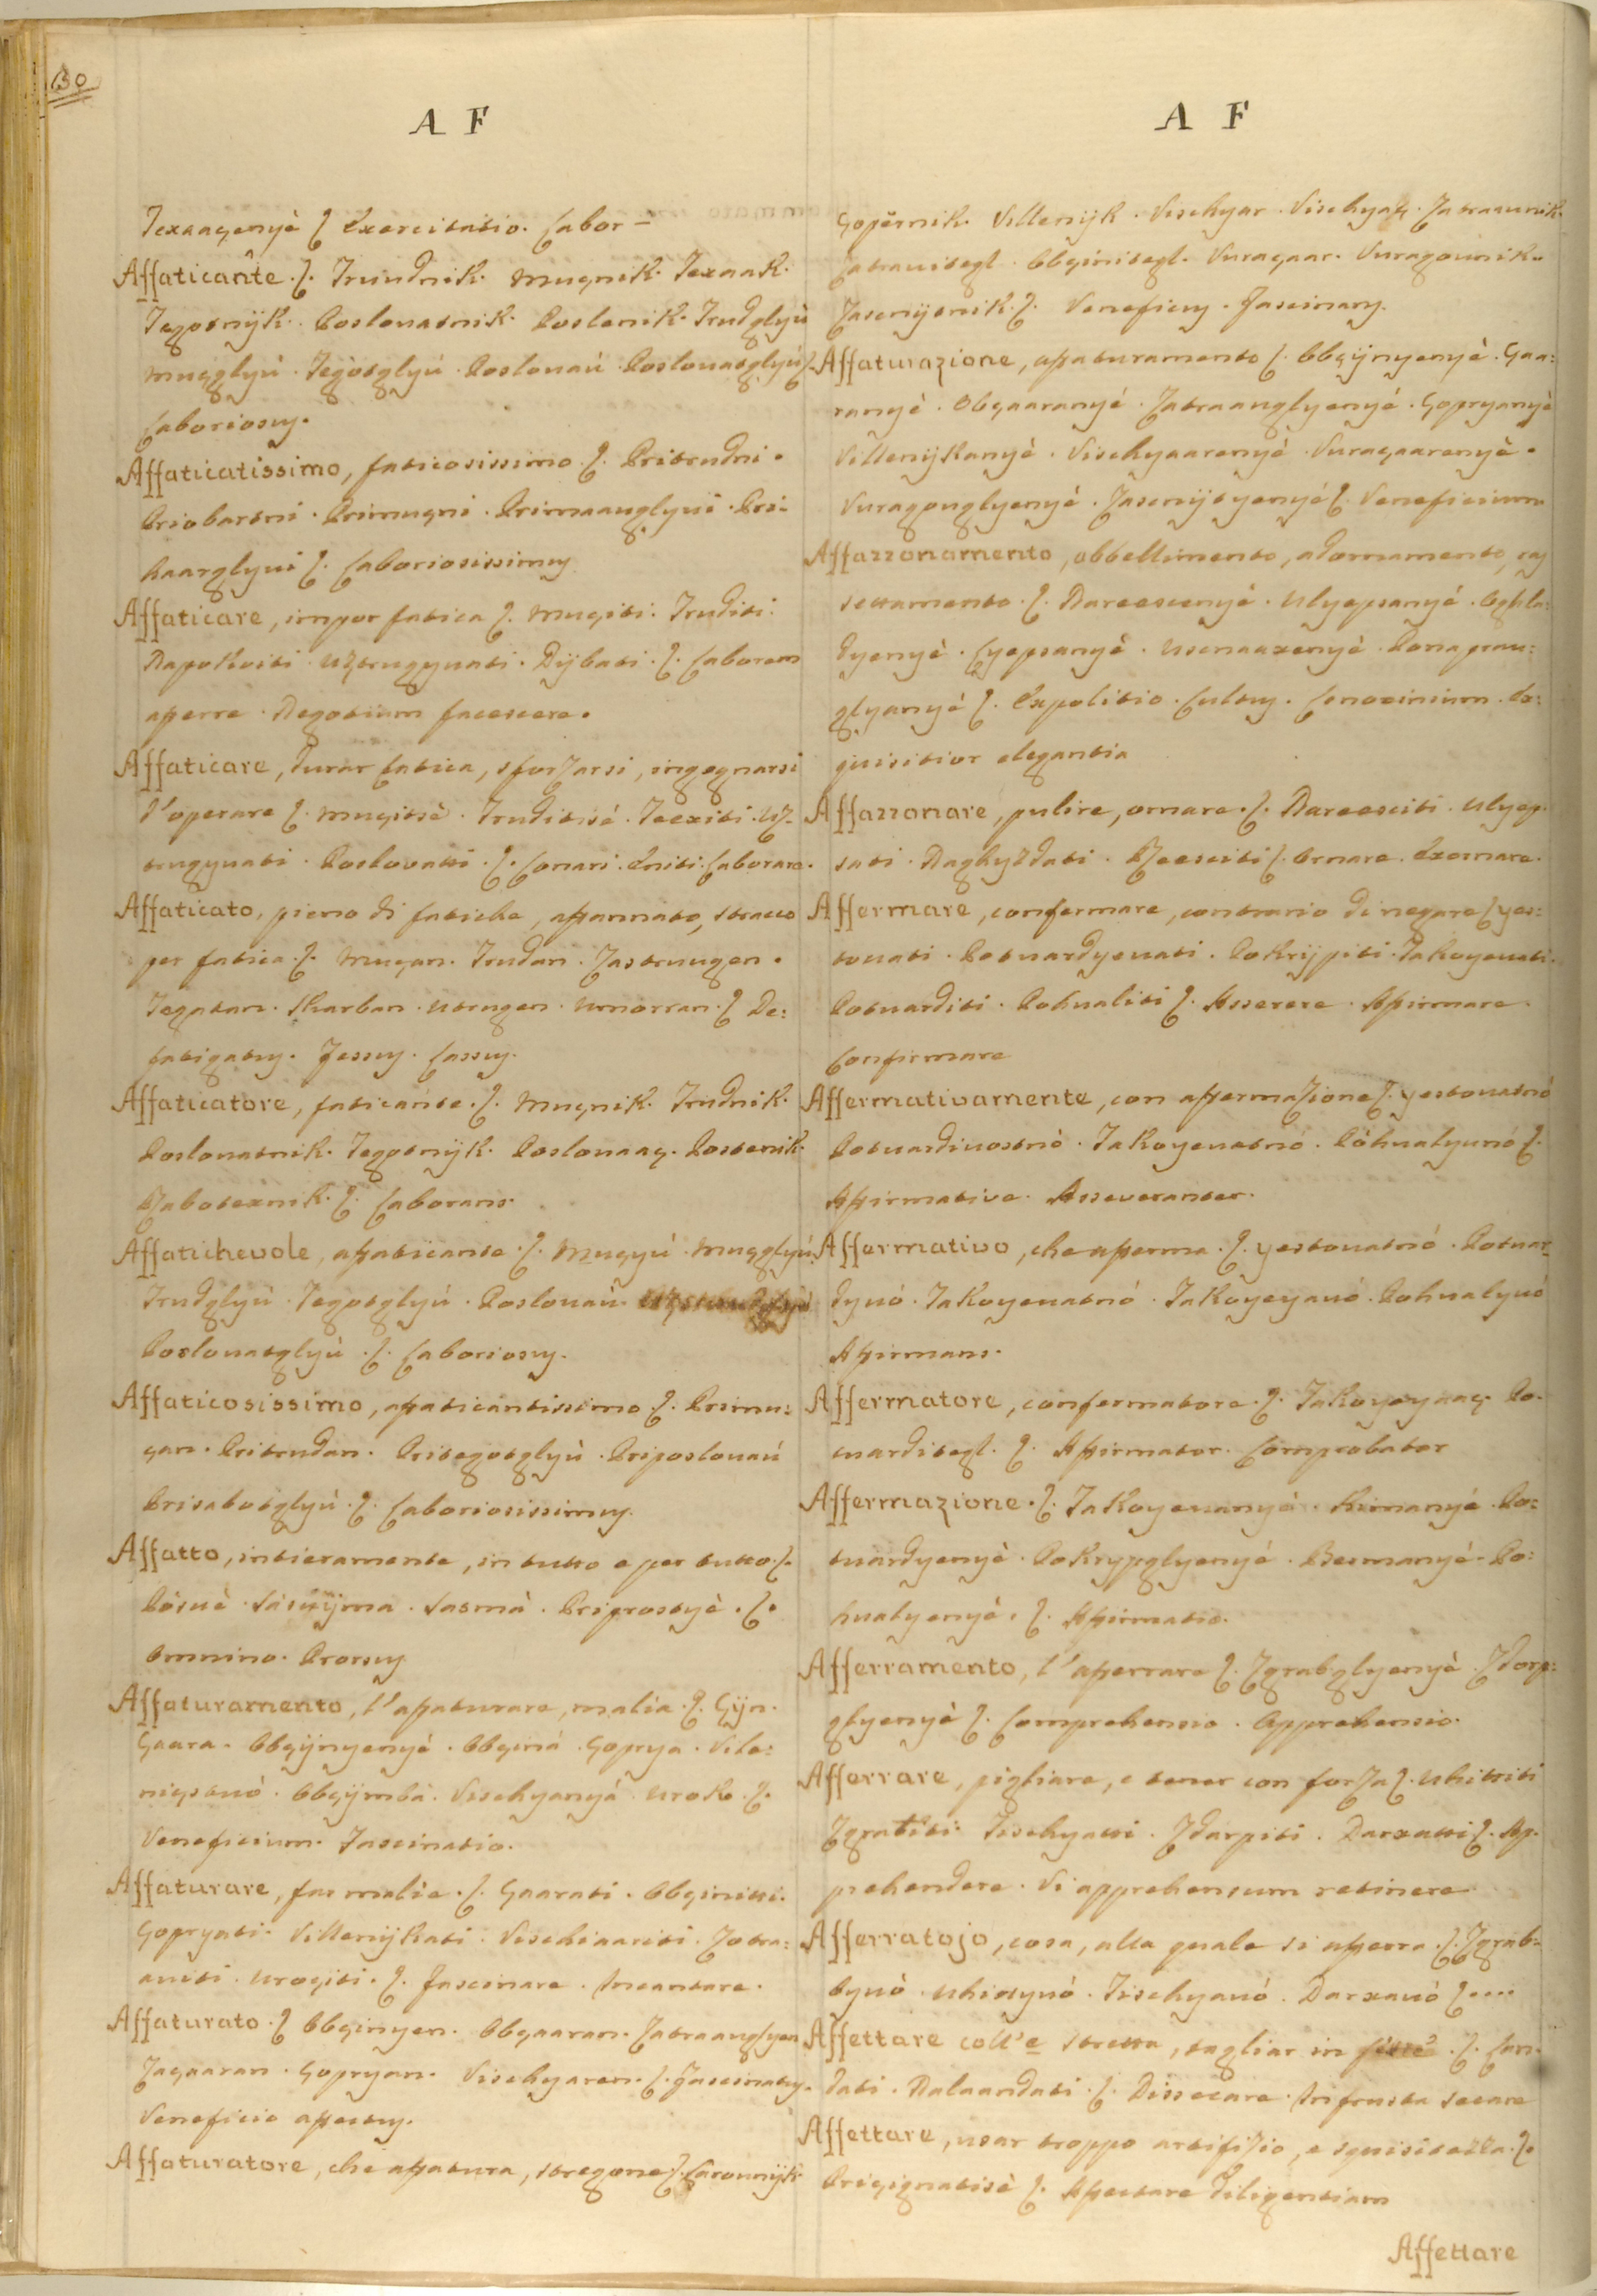 130
A F
Texaaçenyè ⁊ Exercitatio. Labor =
Affaticante. ⁊. Truudnik. Muçnik. Texaak.
Tegotnÿk. Poslouatnik. Poslenik. Trudglyù
Muçglyù. Tegotglyú. Poslouaú. Poslouatglyú ⁊.
Laboriosus.
Affaticatissimo, faticosissimo. ⁊. Pritrudni.
Priobartni. Primuçni. Primaanglyui. Pri-
haarglyui ⁊. Laboriosissimus
Affaticare, impor fatica ⁊. Muçiti. Truditi.
Napokoiti. Uztrugguati. Dÿbati. ⁊. Laborem
afferre. Negotium facescere.
Affaticare, durar fatica, sforzarsi, ingegnarsi
d'operare ⁊. Muçitsè. Truditisé. Teexiti. Uz-
trugguati. Poslovatti. ⁊. Conari. Eniti. Laborare.
Affaticato, pieno di fatiche, affannato, stracco
per fatica. ⁊. Muçan. Trudan. Zastruugen.
Tegatan. Skarban. Utrugen. Umorran. ⁊ De:
fatigatus. Fessus. Lassus.
Affaticatore, faticante. ⁊. Muçnik. Trudnik.
Poslouatnik. Tegotnÿk. Poslouaaç. Postenik.
Rabotexnik. ⁊. Laborans.
Affatichevole, affaticante. ⁊. Muçyú. Muçglyú.
Trudglyù. Tegotglyú. Poslouaù.
Poslouatglyù. ⁊. Laboriosus.
Affaticosissimo, affaticantissimo. ⁊. Primu:
çan. Pritrudan. Pritegotglyù. Priposlouaú
Prisabotglyù. ⁊. Laboriosissimus.
Affatto, intieramente, in tutto e per tutto. ⁊.
Pósuè. Sásuÿma. Satmà. Priprostyè. ⁊.
Omnino. Prorsus
Affaturamento, l'affaturare, malìa. ⁊. Çÿn.
Gaara. Obçÿnyenyé. Obçiná. Çoprya. Vile:
niçtuó. Obçÿmbà. Vischyanyá. Urok. ⁊.
Veneficium. Fascinatio.
Affaturare, far malie. ⁊. Gaarati. Obçinitti.
Çopryati. Villenÿkati. Vischiaariti. Zatra:
auiti. Uroçiti. ⁊. Fascinare. Incantare.
Affaturato. ⁊ Obçinyen. Obgaaran. Zatraanglyen
Zagaaran. Çopryan. Vischyaren. ⁊. Fascinatus.
Veneficio affectus.
Affaturatore, che affatura, stregone ⁊. Çarounÿk
A F
Çopèrnik. Villenÿk. Vischyar. Vischyaç. Zatraaunik.
Zatrauitegl. Obçinitegl. Vuragaar. Vuragounik.
Zascnÿtnik. ⁊. Veneficus. Fascinans.
Affaturazione, affaturamento ⁊. Obçÿnyenyè. Gaa:
ranyè. Obgaaranyé. Zatraanglyenyé. Çopryanyè
Villenÿkanyè. Vischyaarenyè. Vuragaarenyè.
Vuragounglyenyè. Zascnÿtyenyé ⁊. Veneficium
Affazzonamento, abbellimento, adornamento, ras
settamento. ⁊. Nareescenyè. Ulyepsanyé. Oghla:
dyenyè. Lyepsanyè. Usenaaxenyè. Ponaprau:
glyanyé ⁊. Expolitio. Cultus. Concinnium. Ex:
quisitior elegantia
Affazzonare, pulire, ornare. ⁊. Nareesciti. Ulyep-
sati. Naghyzdati. Reesciti ⁊. Ornare. Exornare.
Affermare, confermare, contrario di negare ⁊ yes:
touati. Potuardyeuati. Pokrÿpiti. Takoyeuati.
Potuarditi. Pohualiti ⁊. Asserere. Affirmare
Confirmare
Affermativamente, con affermazione ⁊. yestouatnó
Potuardiuostnò. Takoyeuatnó. Póhualyunó ⁊.
Affirmative. Asseveranter.
Affermativo, che afferma. ⁊. yestouatnó. Potuar-
dyuó. Takoyeuatnó. Takoyeyauó. Pohualyuó
Affirmans.
Affermatore, confermatore. ⁊. Takoyeyaaç. Po-
tuarditegl. ⁊. Affirmator. Comprobator
Affermazione. ⁊. Takoyeuanyè. Kimanyé. Po:
tuardyenyè. Pokrypglyenyé. Beemanyé. Po:
hualyenyè. ⁊. Affirmatio.
Afferramento, l'afferrare ⁊. Zgrabglyenyè. Zdarp:
glyenyè ⁊. Comprehensio. Apprehensio.
Afferrare, pigliare, e tener con forza ⁊. Uhittiti
Zgrabiti. Tischyatti. Zdarpiti. Darxatti ⁊. Ap-
prehendere. Vi apprehensum retinere
Afferratojo, cosa, alla quale si afferra. ⁊. Zgrab-
byuò. Uhityuó. Tischyauó. Darxauò ⁊....
Affettare coll'e stretta, tagliar in fette. ⁊. Lan-
dati. Nalaandati. ⁊. Dissecare. In frusta secare
Affettare, usar troppo artifizio, e squisitezza. ⁊.
Priçignatisè ⁊. Affectare diligentiam
Affettare